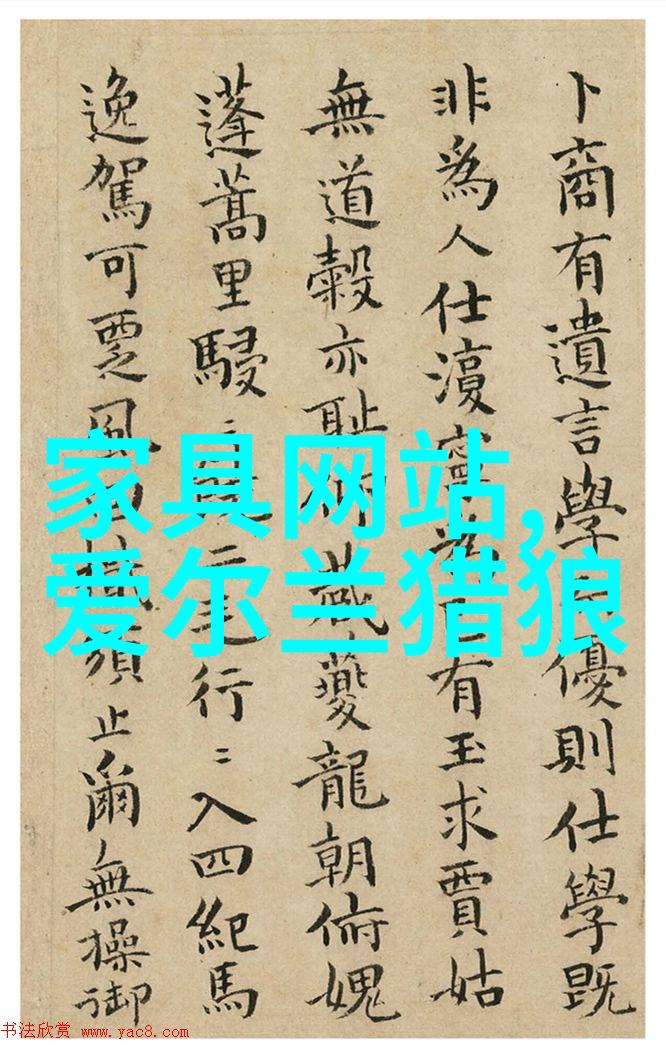 卜商有遺言學優則仕學既
非為人仕有玉求賈姑
無道穀亦耻夔龍朝俯媿
蓬蒿里駸二毛行〻入四紀馬
逸駕可覂風須止爾無操御
家具网站,
爱尔兰猎狼
书法欣赏 www.yac8.com